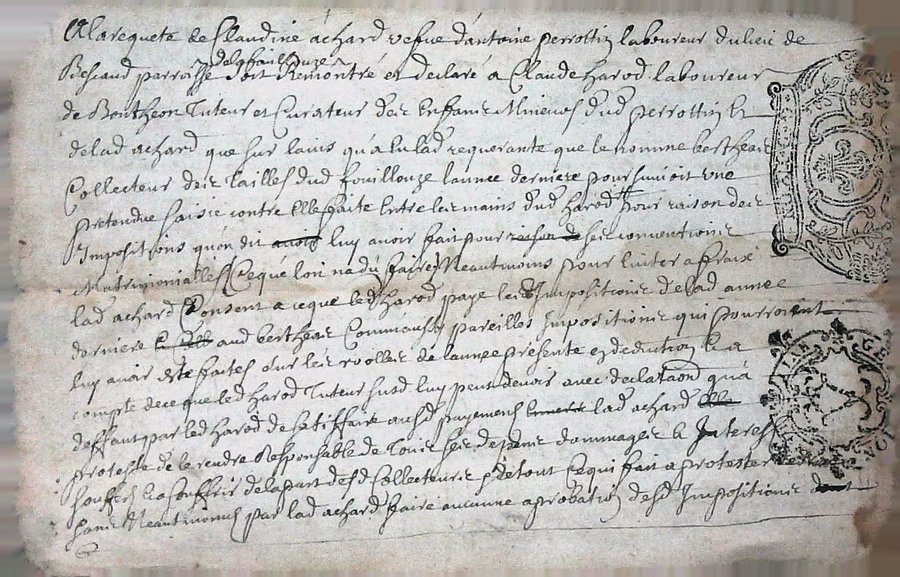 A la requete de Claudine achard vefve d'antoine perrottin laboureur du lieu de
de la fouillouze
Beseaud parroisse soit Remontré et declaré a Claude harod laboureur
de Bontheon Tuteur et Curateur des Enffans Mineurs dud perrottin Et
de lad achard que sur lavis qu'a Eu lad requerante que le nomme berthear
Collecteur des Tailles dud fouillouze lannee derniere poursuivoit une
pretendue saisie contre Elle faite Entre les mains dud harod pour raison des
Impositions qu'on dit luy avoir fait pour ses conventions
Matrimonialles Ce que lon na dû faire Neantmoins pour Eviter a fraix
lad achard Consent a ce que led harod paye les Impositions de lad annee
derniere aud berthear Comme aussy pareilles Impositions qui pourroient
luy avoir esté faites sur les roolles de lannee presente En deduction Et a
compte de ce que led harod Tuteur susd luy peut devoir avec declataon qu'a
deffaut par led harod de satisffaire ausd payements lad achard
proteste de le rendre Responsable de Tous ses depans dommages Et Interests
soufferts Et a souffrir de la part desd Collecteurs Et de tout ce qui fait a protester
sans Neantmoins par lad achard faire aucune aprobation desd Impositions
GE